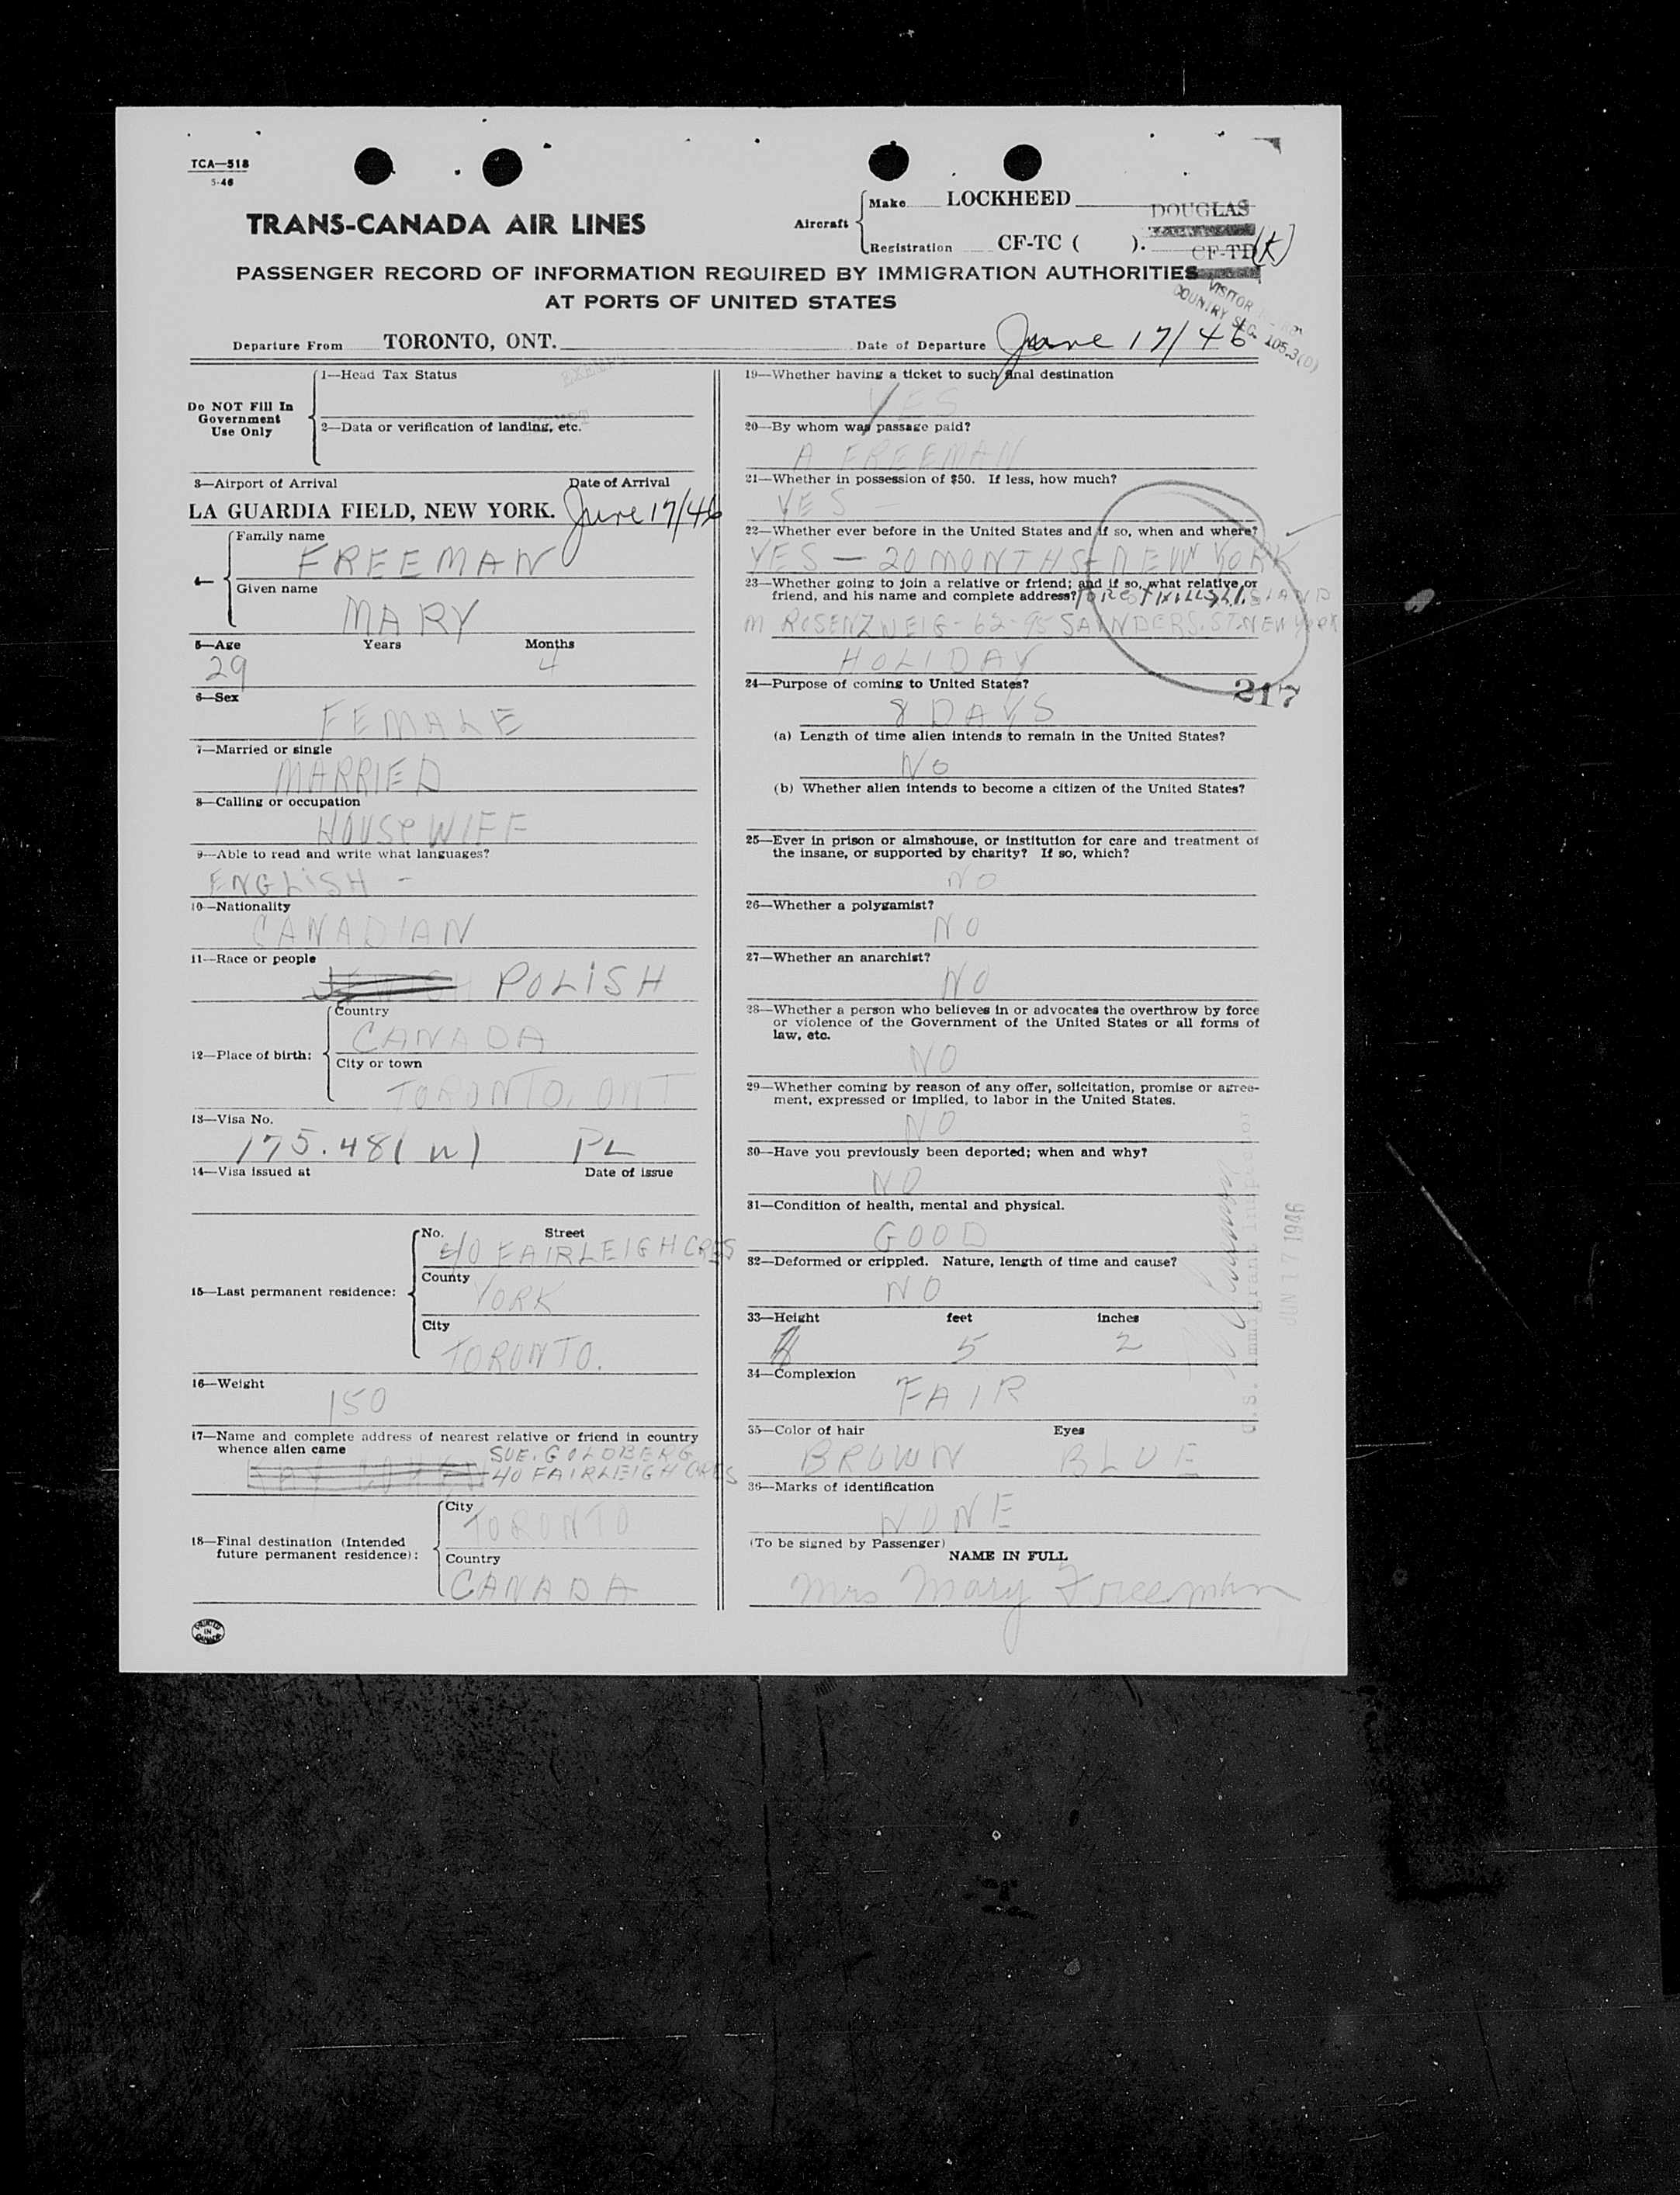 TCA—518
5-46
TRANS-CANADA AIR LINES
Aircraft
Make LOCKHEED
DOUGLAS
Registration CF-TC ( ).
CF-TD (K)
PASSENGER RECORD OF INFORMATION REQUIRED BY IMMIGRATION AUTHORITIES
AT PORTS OF UNITED STATES
VISITOR
COUNTRY SEC. 105.3(D)
Departure From TORONTO, ONT.
Date of Departure June 17/46
Do NOT Fill In
Government
Use Only
1—Head Tax Status
2—Data or verification of landing, etc.
3—Airport of Arrival Date of Arrival
LA GUARDIA FIELD, NEW YORK. June 17/46
4—
Family name
FREEMAN
Given name
MARY
5—Age Years Months
29 4
6—Sex
FEMALE
7—Married or single
MARRIED
8—Calling or occupation
HOUSEWIFE
9—Able to read and write what languages?
ENGLISH -
10—Nationality
CANADIAN
11—Race or people
POLISH
12—Place of birth:
Country
CANADA
City or town
TORONTO, ONT
13—Visa No.
175.48( w) PL
14—Visa issued at Date of issue
15—Last permanent residence:
No. Street
40 FAIRLEIGH CRES
County
YORK
City
TORONTO.
16—Weight
150
17—Name and complete address of nearest relative or friend in country
whence alien came
SUE. GOLDBERG
40 FAIRLEIGH CRES
18—Final destination (Intended
future permanent residence):
City
TORONTO
Country
CANADA
PRINTED
IN
CANADA
19—Whether having a ticket to such final destination
YES
20—By whom was passage paid?
A FREEMAN
21—Whether in possession of $50. If less, how much?
YES —
22—Whether ever before in the United States and if so, when and where?
YES — 20 MONTHS - NEW YORK
23—Whether going to join a relative or friend; and if so, what relative or
friend, and his name and complete address? FOREST HILLS, L. ISLAND
M ROSENZWEIG - 62-95 SAUNDERS. ST. NEW YORK
HOLIDAY
24—Purpose of coming to United States?
217
8 DAYS
(a) Length of time alien intends to remain in the United States?
NO
(b) Whether alien intends to become a citizen of the United States?
25—Ever in prison or almshouse, or institution for care and treatment of
the insane, or supported by charity? If so, which?
NO
26—Whether a polygamist?
NO
27—Whether an anarchist?
NO
28—Whether a person who believes in or advocates the overthrow by force
or violence of the Government of the United States or all forms of
law, etc.
NO
29—Whether coming by reason of any offer, solicitation, promise or agree-
ment, expressed or implied, to labor in the United States.
NO
30—Have you previously been deported; when and why?
NO
31—Condition of health, mental and physical.
GOOD
32—Deformed or crippled. Nature, length of time and cause?
NO
33—Height feet inches
5 2
34—Complexion
FAIR
35—Color of hair Eyes
BROWN BLUE
36—Marks of identification
NONE
(To be signed by Passenger)
NAME IN FULL
Mrs Mary Freeman
U.S. Immigrant Inspector
JUN 17 1946